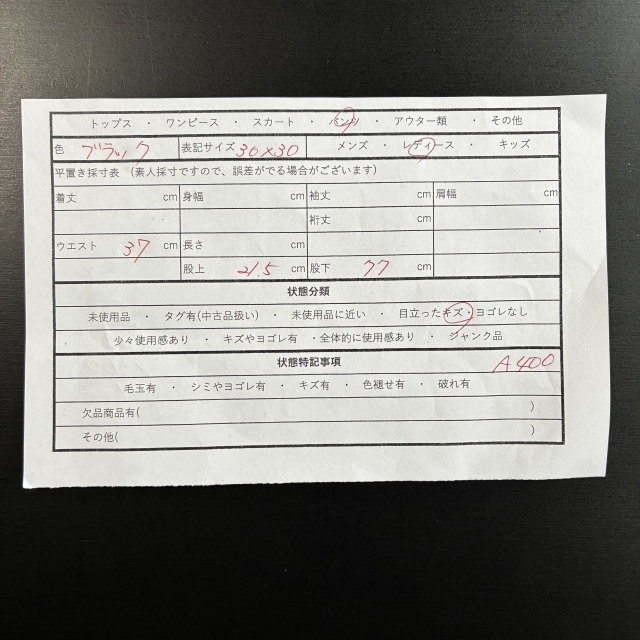 トップス ・ ワンピース ・ スカート ・ パンツ ・ アウター類 ・ その他
色 ブラック 表記サイズ 30×30 メンズ ・ レディース ・ キッズ
平置き採寸表 (素人採寸ですので、誤差がでる場合がございます)
着丈 cm 身幅 cm 袖丈 cm 肩幅 cm
裄丈 cm
ウエスト 37 cm 長さ cm
股上 21.5 cm 股下 77 cm
状態分類
未使用品 ・ タグ有(中古品扱い) ・ 未使用品に近い ・ 目立ったキズ・ヨゴレなし
少々使用感あり ・ キズやヨゴレ有 ・全体的に使用感あり ・ ジャンク品
状態特記事項 A400
毛玉有 ・ シミやヨゴレ有 ・ キズ有 ・ 色褪せ有 ・ 破れ有
欠品商品有( )
その他( )